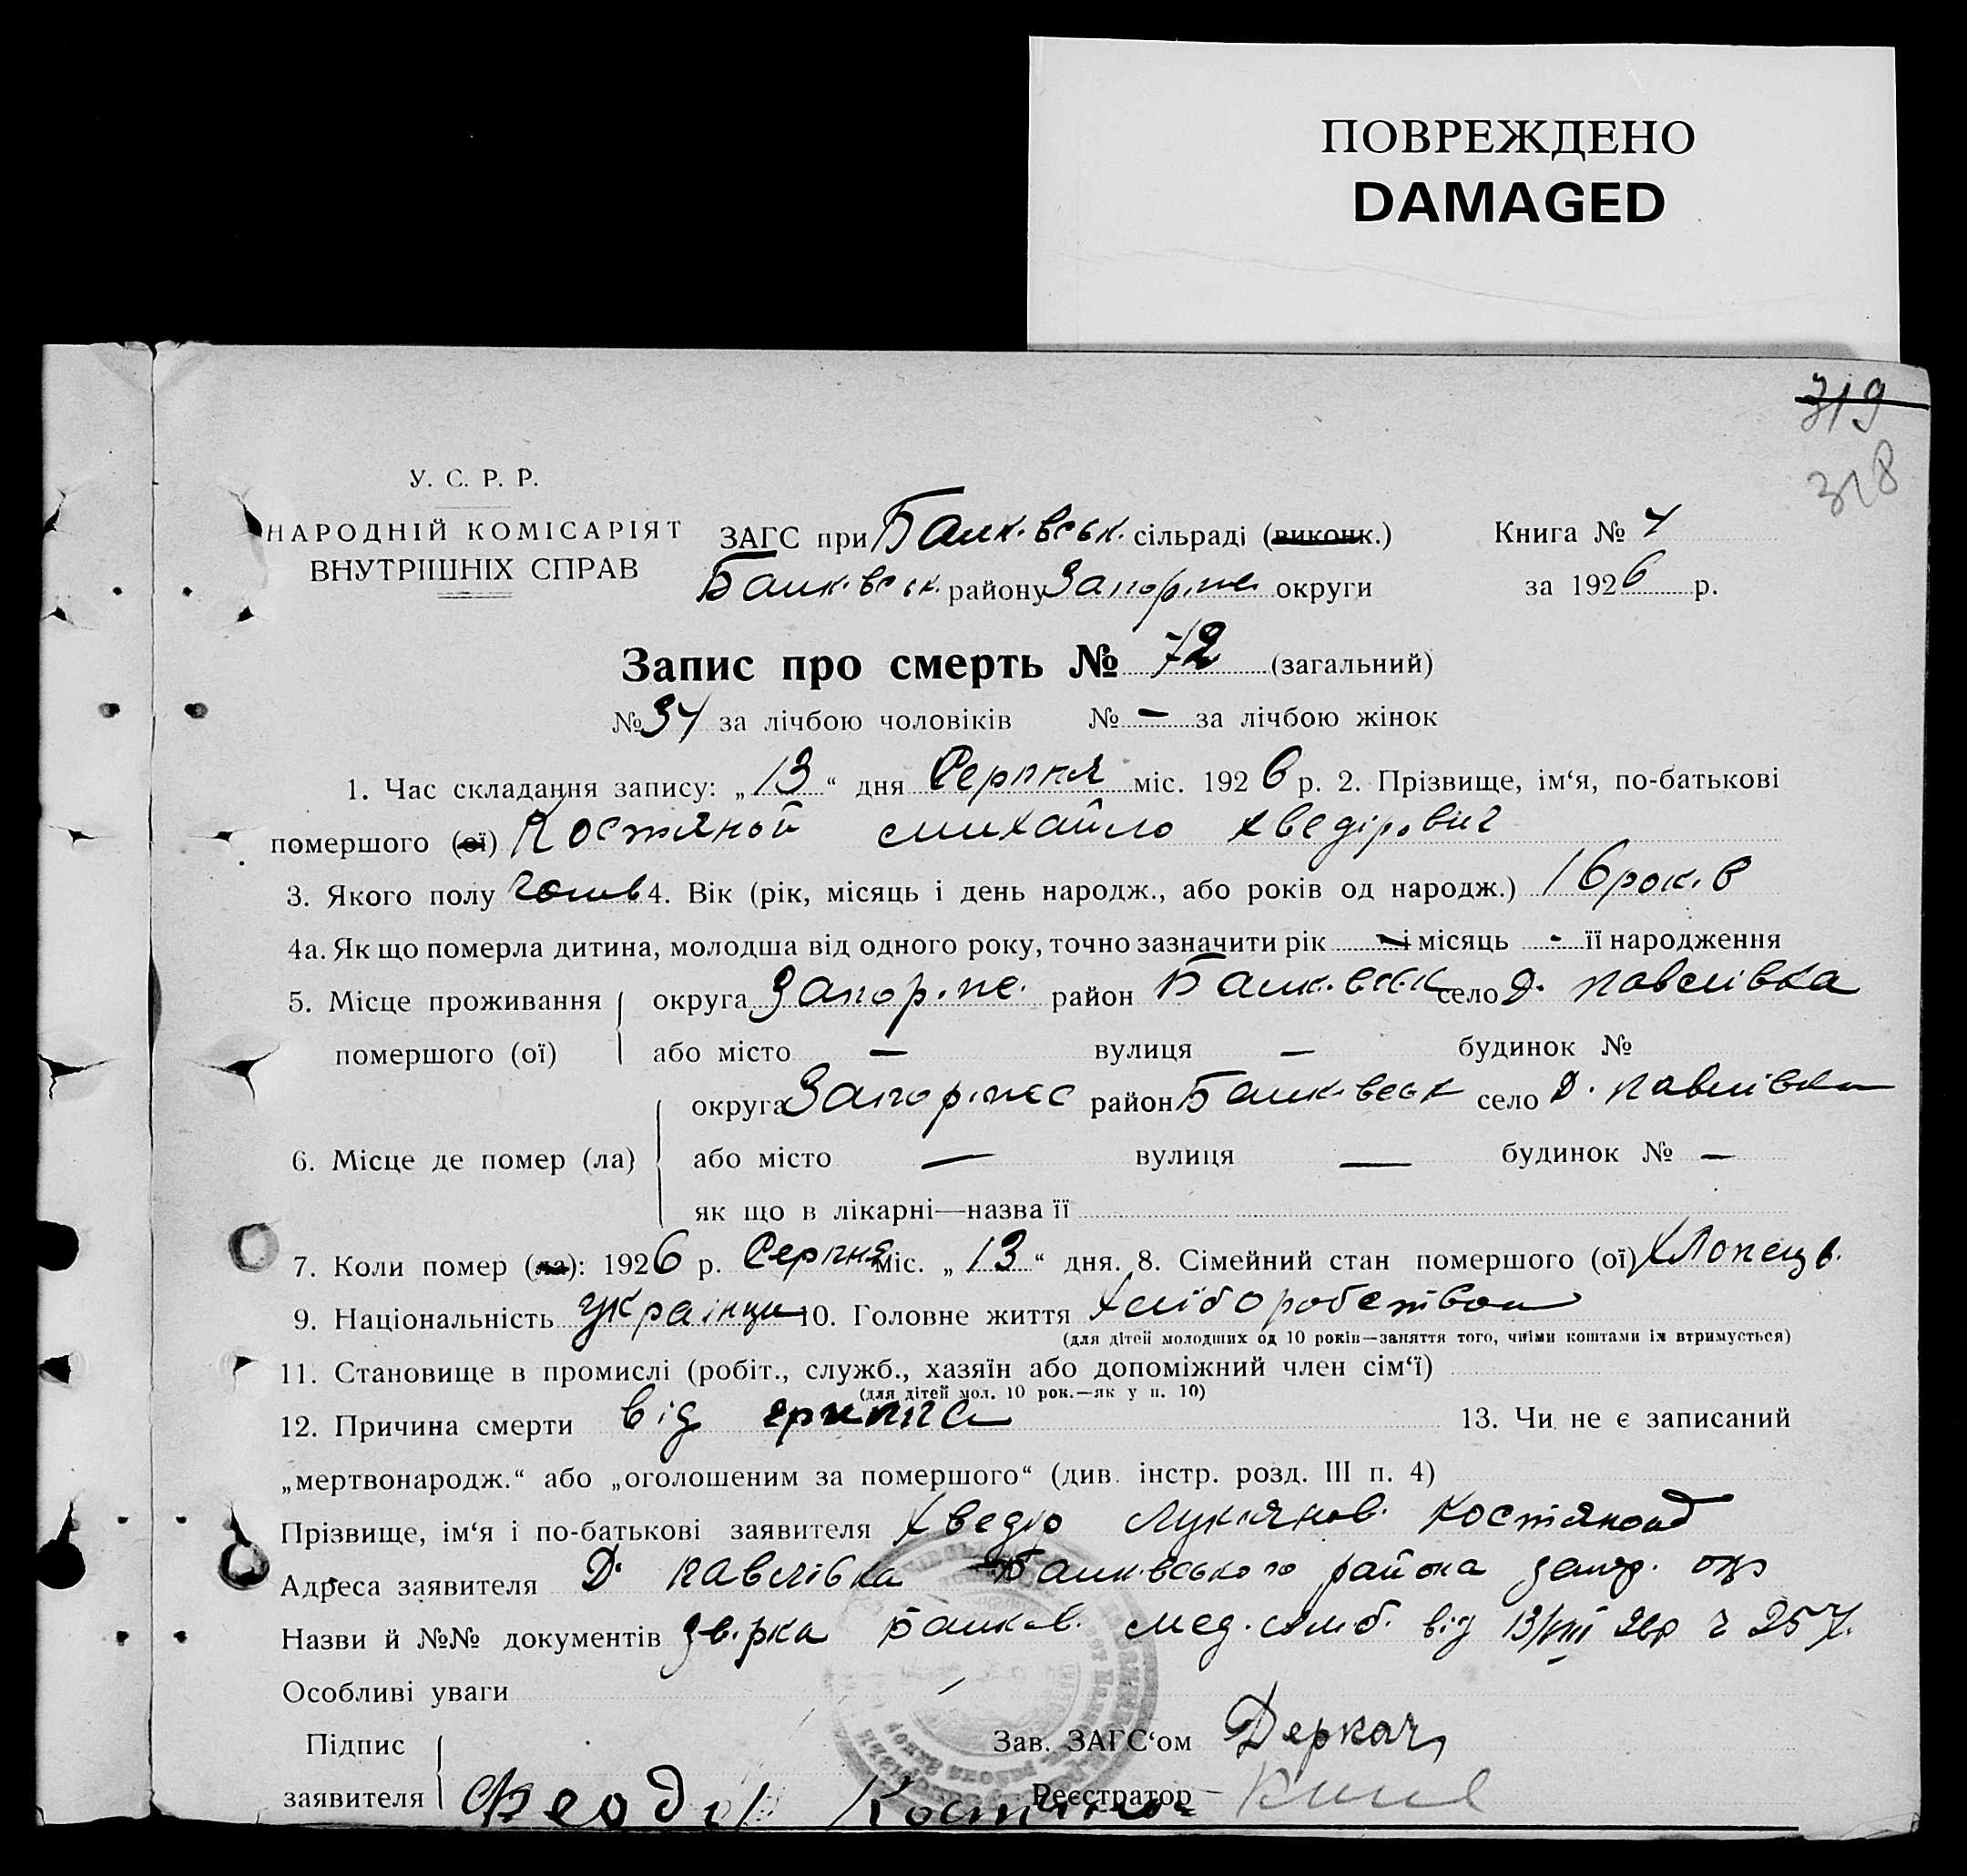 ПОВРЕЖДЕНО
DAMAGED
319
318
У. С. Р. Р.
НАРОДНІЙ КОМІСАРІЯТ
ВНУТРІШНІХ СПРАВ
ЗАГС при Балк.вськ. сільраді (виконк.) Книга № 4
Балк.вськ. району Запоріже округи за 1926 р.
Запис про смерть № 72 (загальний)
№ 34 за лічбою чоловіків № — за лічбою жінок
1. Час складання запису: „13“ дня Серпня міс. 1926 р. 2. Прізвище, ім‘я, по-батькові
помершого (ої) Костяной Михайло Хведірович
3. Якого полу 4. Вік (рік, місяць і день народж., або років од народж.) 16 рок.в
4а. Як що померла дитина, молодша від одного року, точно зазначити рік - і місяць - її народження
5. Місце проживання округа Запор.же. район Балк.вськ село Д. Павлівка
помершого (ої) або місто — вулиця — будинок №
округа район Балк.вськ село Д. Павлівка
6. Місце де помер (ла) або місто — вулиця — будинок № —
як що в лікарні—назва її
7. Коли помер (ла): 1926 р. Серпня міс. „13“ дня. 8. Сімейний стан помершого (ої) Хлопець
9. Національність 10. Головне життя Хліборобством
(для дітей молодших од 10 років—заняття того, чиїми коштами їх втримується)
11. Становище в промислі (робіт., служб., хазяїн або допоміжний член сім‘ї)
(для дітей мол. 10 рок.—як у п. 10)
12. Причина смерти від грипа 13. Чи не є записаний
„мертвонародж.“ або „оголошеним за помершого“ (див. інстр. розд. III п. 4)
Прізвище, ім‘я і по-батькові заявителя Хведір Лук.янов. Костяной
Адреса заявителя Д. Павлівка Балк.вського района запор. окр
Назви й №№ документів Балк.в. мед. амб. від 13/VIII 26р ч 257.
Особливі уваги
Підпис Зав. ЗАГС‘ом Деркач
заявителя Феодор Костяной Реєстратор